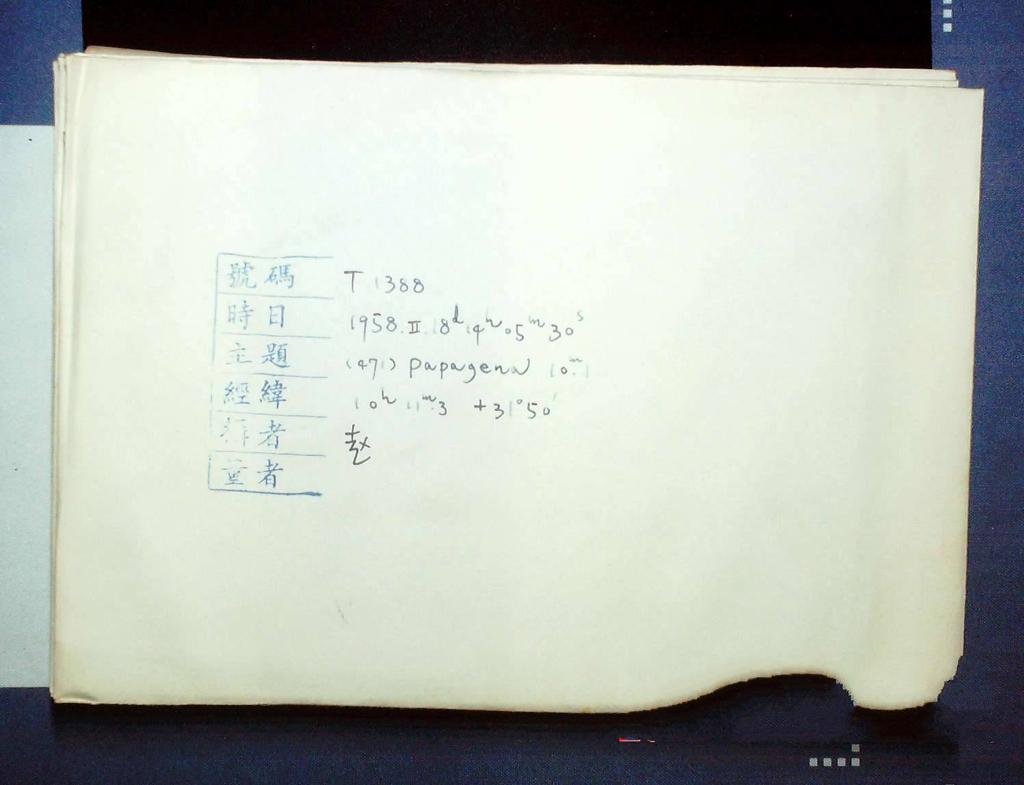 號碼 T 1388
時日 1958. II. 18ᵈ 14ʰ 05ᵐ 30ˢ
主題 (471) Papagena 10ᵐ.1
經緯 10ʰ 11ᵐ.3 +31°50′
者 赵
量者